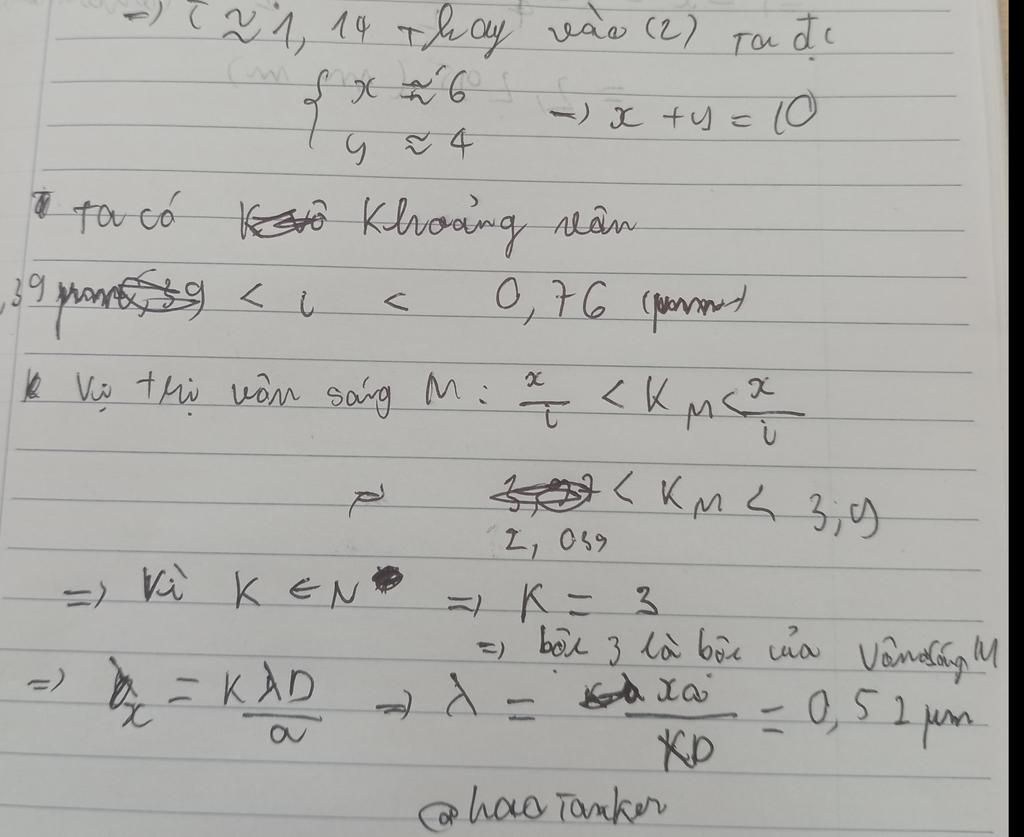 => i ≈ 1, 14 Thay vào (2) Ta đc
{ x ≈ 6
y ≈ 4
=> x + y = 10
Ta có Khoảng vân
,39 < i < 0,76
Vị trí vân sáng M : x/i < K M < x/i
=> 2, 039 < K M < 3,9
=> Vì K ∈ N => K = 3
=> bậc 3 là bậc của Vân sáng M
=> x = KλD/a => λ = xa/KD = 0,52 μm
@haoTanker